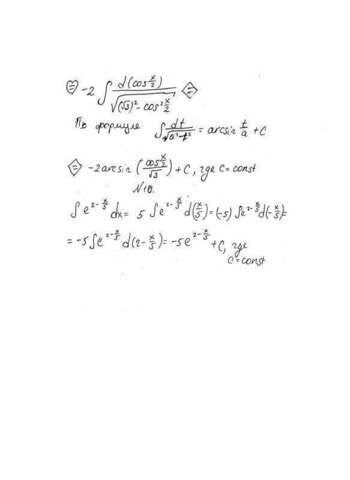 ⊜ -2 ∫ d(cos x/2) / √((√3)² - cos² x/2) ⊜
По формуле ∫ dt / √(a² - t²) = arcsin t/a + C
⊜ -2 arcsin (cos x/2 / √3) + C, где C = const
N10.
∫ e^(2-x/5) dx = 5 ∫ e^(2-x/5) d(x/5) = (-5) ∫ e^(2-x/5) d(-x/5) =
= -5 ∫ e^(2-x/5) d(2-x/5) = -5e^(2-x/5) + C, где
C = const